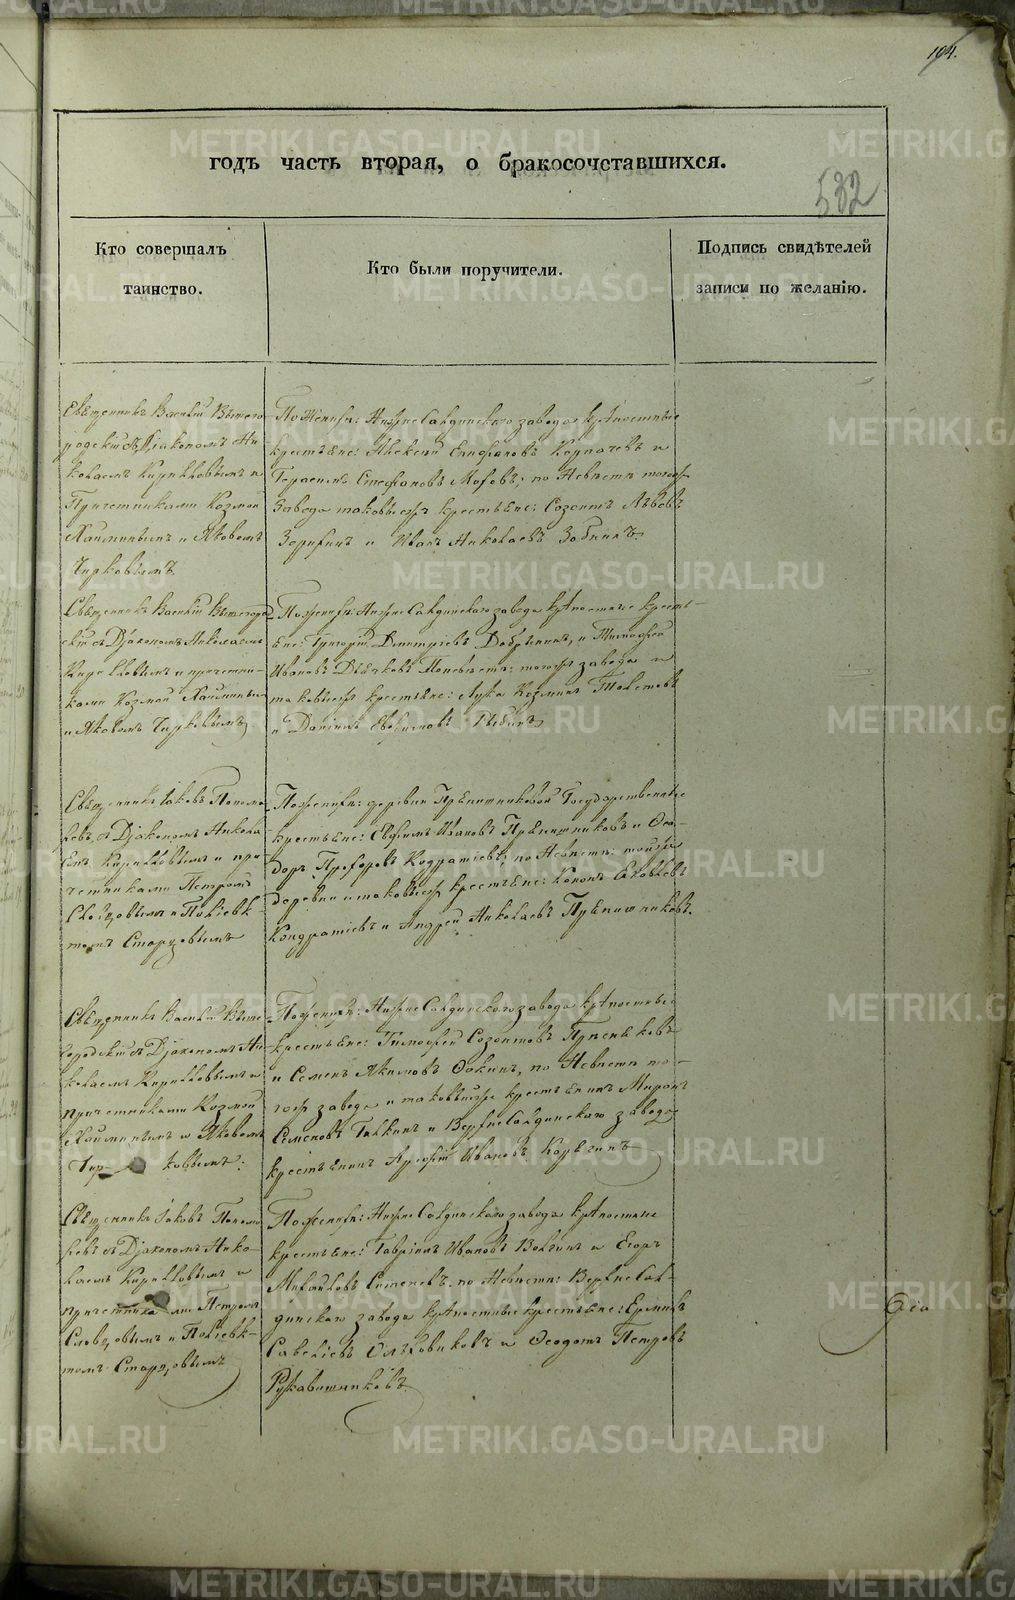 194.
годъ часть вторая, о бракосочетавшихся.
532
Кто совершалъ
таинство.
Кто были поручители.
Подпись свидѣтелей
записи по желанію.
Священникъ Василій Вышего-
родскій съ Діакономъ Ни-
колаемъ Кирилловымъ и
Причетниками Козмой
и Яковомъ
Чирковымъ
По Женихѣ: Нижнесалдинскаго завода крѣпостные
крестьяне: Алексій Корпачевъ и
Герасимъ Стефановъ Мохов; по Невѣстѣ тогожъ
Завода таковыежъ крестьяне: Созонтъ Львовъ
Зорихинъ и Иванъ Николаевъ Забнинъ
Священникъ Василій Вышегород
скій съ Діакономъ Николаемъ
Кирилловымъ и причетни-
ками Козмой
и Яковомъ Чирковымъ
По женихѣ: Нижнесалдинскаго завода крѣпостные кресть-
яне: Григорій Димитріевъ Добрынинъ, и Тимофей
Ивановъ Дьячковъ По невѣстѣ: тогожъ завода и
таковыежъ крестьяне: Лука Козминъ Толстовъ
и Даніилъ Евдокимовъ
Священникъ Іаковъ Попома
ревъ, съ Діакономъ Никола
емъ Кирилловымъ и при
четниками Петромъ
Словцовымъ и Поліевк
томъ Старцовымъ
По женихѣ: деревни Прянишниковой Государственные
крестьяне: Евфимъ Ивановъ Прянишниковъ и Ѳео-
доръ Прохоровъ Кодратіевъ; по Невѣстѣ: тойже
деревни и таковыежъ крестьяне: Кононъ Яковлевъ
Кондратіевъ и Андрей Николаевъ Прянишниковъ.
Священникъ Василій Выше
городскій съ Діакономъ Ни
колаемъ Кирилловымъ и
причетниками Козмой
и Яковомъ
Чирковымъ:
По женихѣ: Нижнесалдинскаго завода крѣпостные
крестьяне: Тимофей Созонтовъ Прѣсняковъ
и Семенъ Якимовъ Ѳокинъ, по Невѣстѣ то-
гожъ завода и таковыйже крестьянинъ Миронъ
Семеновъ Галкинъ и Верхнесалдинскаго завода
крестьянинъ Арефій Ивановъ Корягинъ
Священникъ Іаковъ Попома
ревъ съ Діакономъ Нико-
лаемъ Кирилловымъ и
причетниками Петромъ
Словцовымъ и Поліевк-
томъ Старцовымъ
По женихѣ: Нижнесалдинскаго завода крѣпостные
крестьяне: Гавріилъ Ивановъ Волгинъ и Егоръ
Михайловъ по Невѣстѣ: Верхнесал-
динскаго завода крѣпостные крестьяне: Ермилъ
Савеліевъ и Ѳеодотъ Петровъ
Рукавишниковъ
METRIKI.GASO-URAL.RU